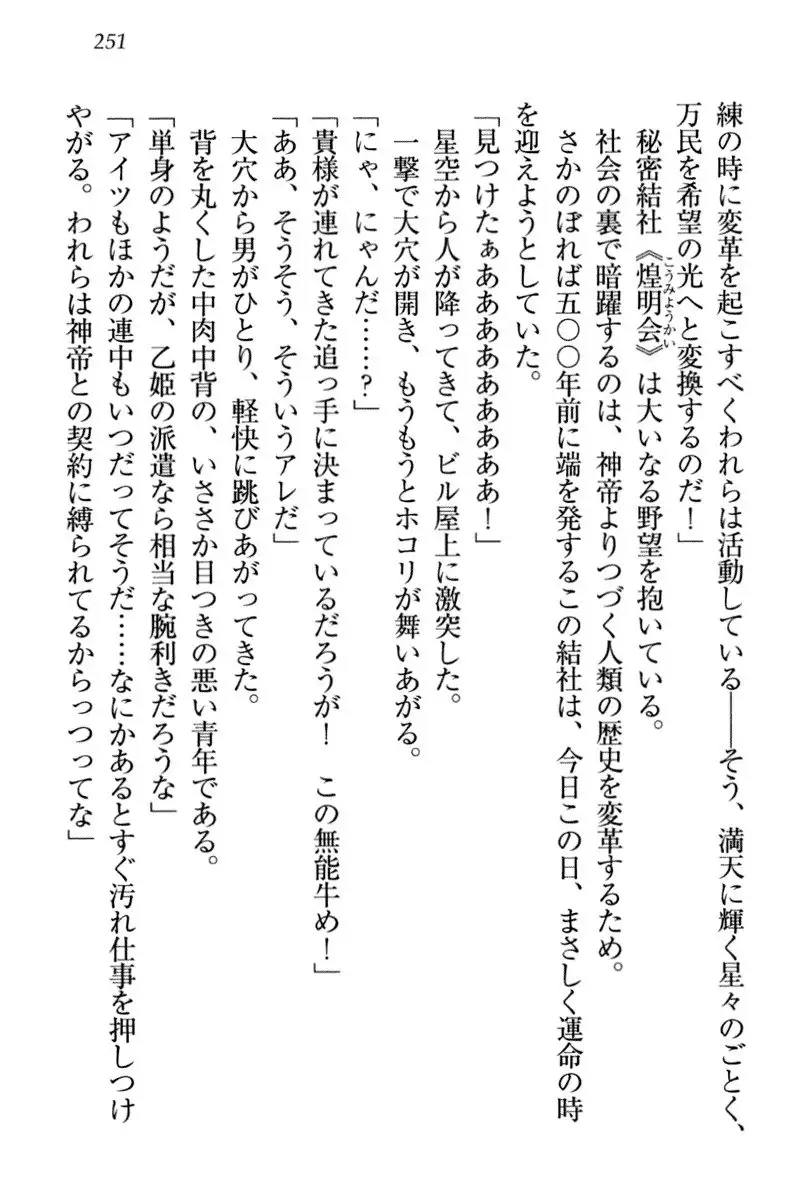 251
練の時に変革を起こすべくわれらは活動している――そう、満天に輝く星々のごとく、
万民を希望の光へと変換するのだ！」
秘密結社《煌明会》は大いなる野望を抱いている。
こうみようかい
社会の裏で暗躍するのは、神帝よりつづく人類の歴史を変革するため。
さかのぼれば五〇〇年前に端を発するこの結社は、今日この日、まさしく運命の時
を迎えようとしていた。
「見つけたぁああああああああ！」
星空から人が降ってきて、ビル屋上に激突した。
一撃で大穴が開き、もうもうとホコリが舞いあがる。
「にゃ、にゃんだ……？」
「貴様が連れてきた追っ手に決まっているだろうが！　この無能牛め！」
「ああ、そうそう、そういうアレだ」
大穴から男がひとり、軽快に跳びあがってきた。
背を丸くした中肉中背の、いささか目つきの悪い青年である。
「単身のようだが、乙姫の派遣なら相当な腕利きだろうな」
「アイツもほかの連中もいつだってそうだ……なにかあるとすぐ汚れ仕事を押しつけ
やがる。われらは神帝との契約に縛られてるからっつってな」